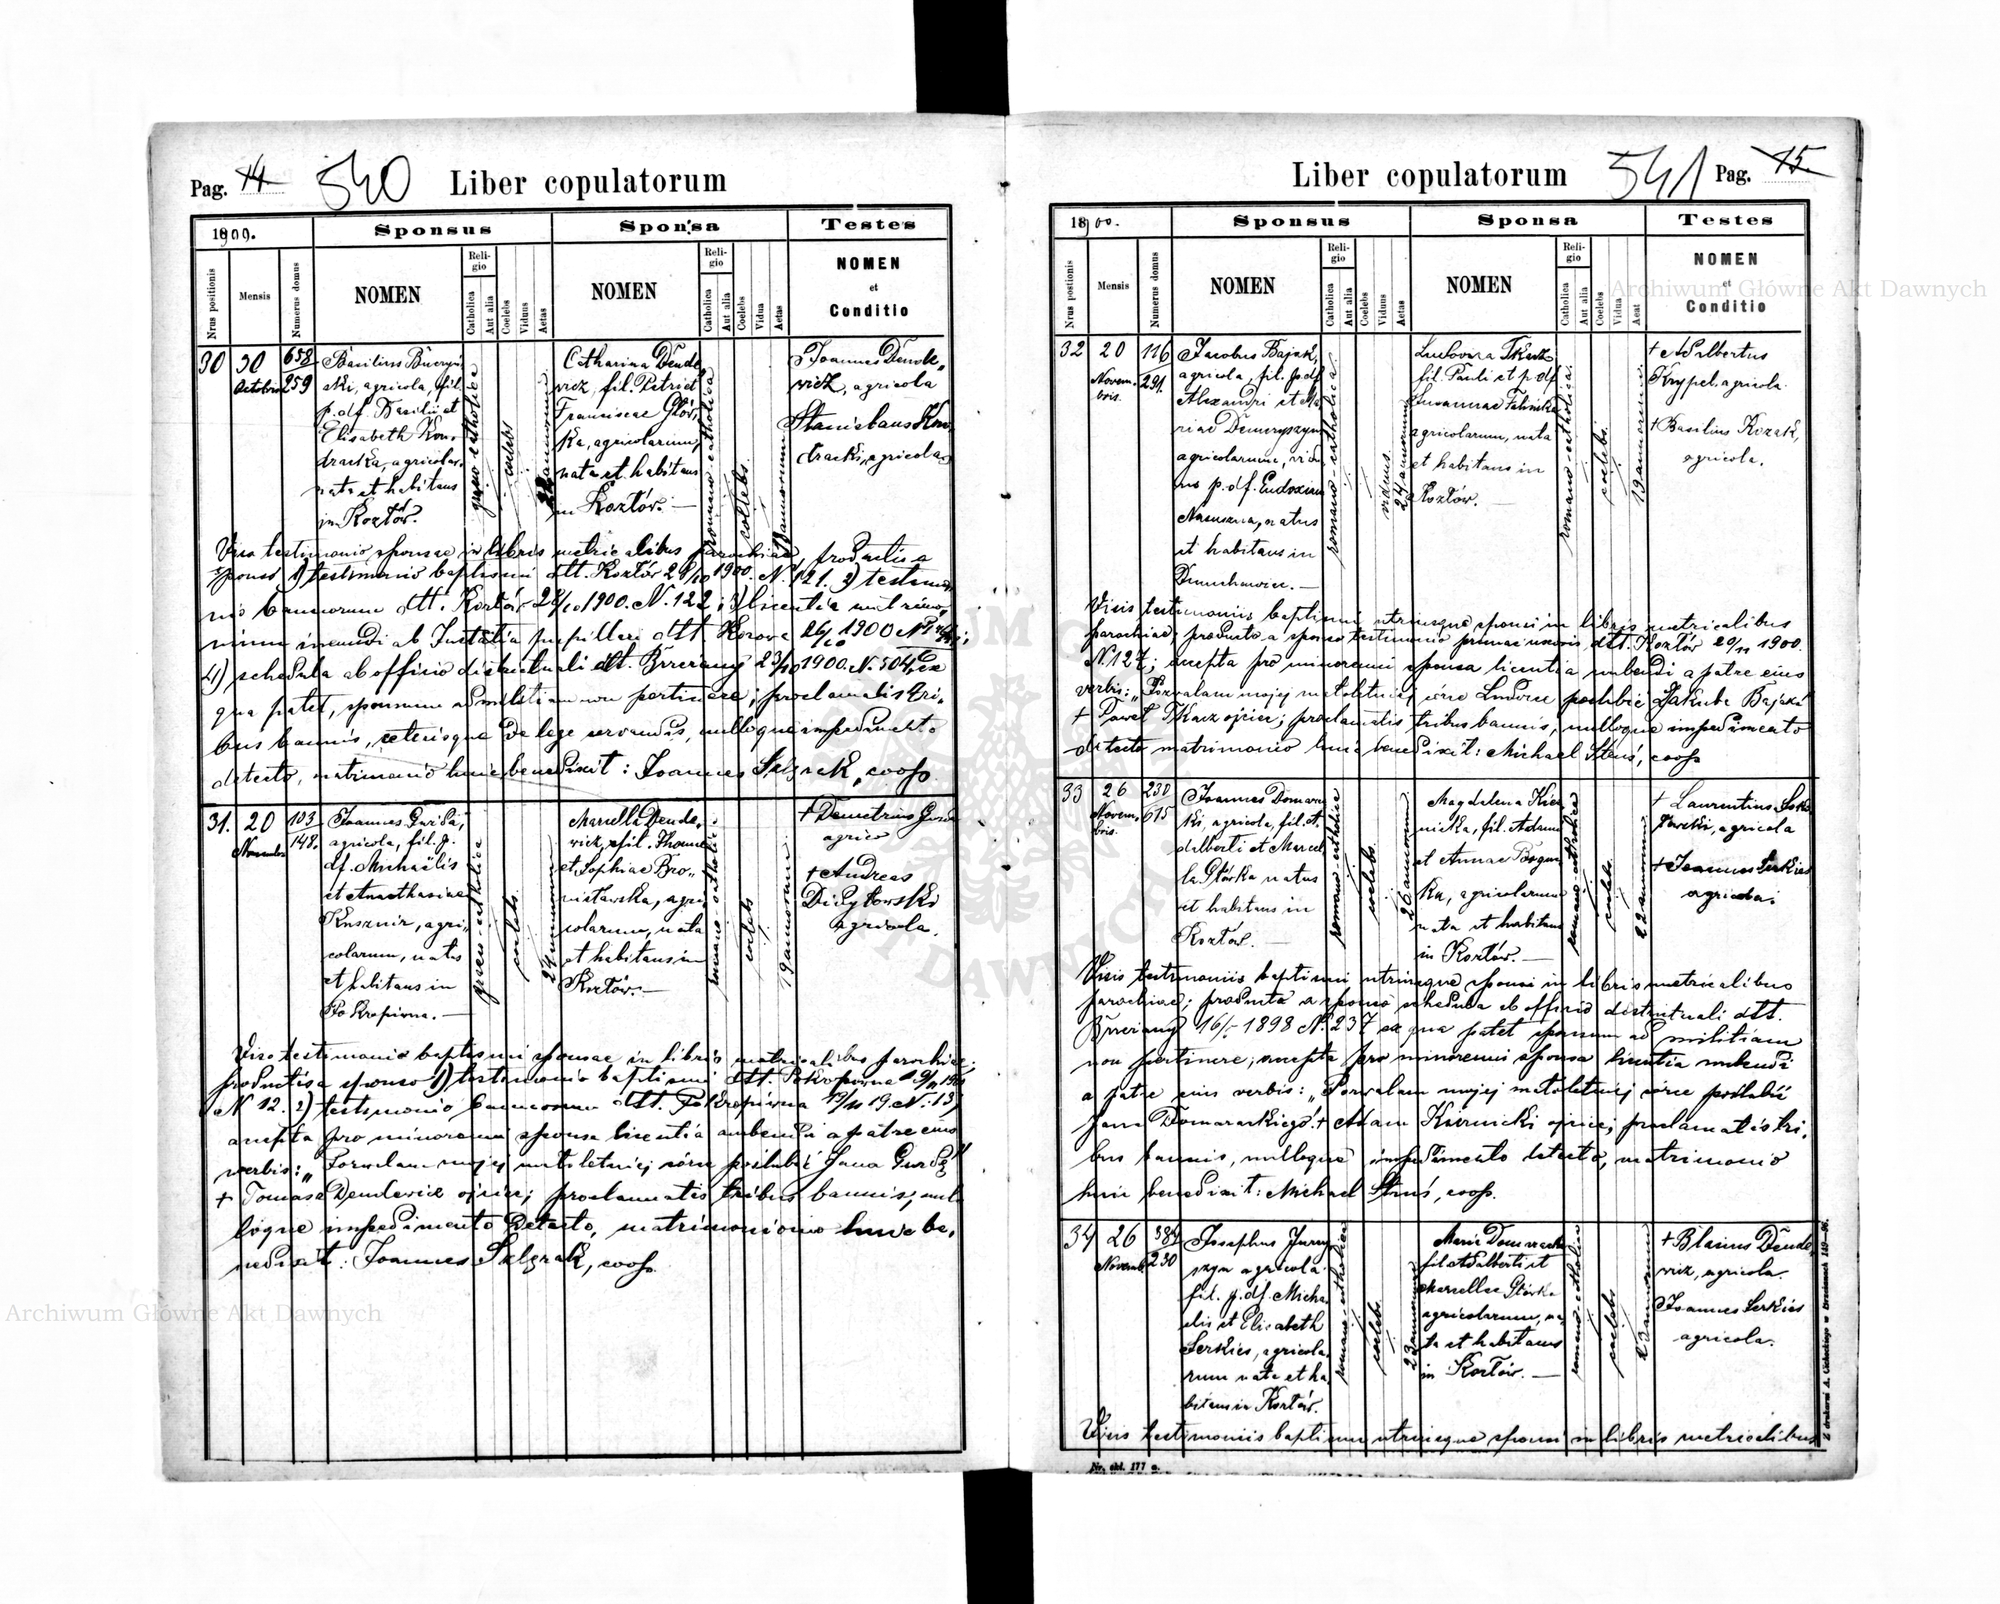 Pag. 14 540 Liber copulatorum
1900. Sponsus Sponsa Testes
Nrus positionis Mensis Numerus domus NOMEN Religio Catholica Aut alia Coelebs Viduus Aetas NOMEN Religio Catholica Aut alia Coelebs Vidua Aetas NOMEN et Conditio
30 30 Octobris 658/259
Basilius
ski, agricola, fil.
p. df. Basilii et
Elisabeth Kon-
dracka, agricolar.
nata et habitans
in Kozłów.
graeco-catholica
coelebs
annorum
Catharina Dende-
vicz, fil. Petri et
Franciscae Głów-
ka, agricolarum,
nata et habitans
in Kozłów. —
romano-catholica
coelebs.
annorum
Joannes Dende-
vicz, agricola
Stanislaus Kon-
dracki, agricola
Viso testimonio sponsae in libris metricalibus parochiae, productis a
sponso 1) testimonio baptismi dtt. Kozłów 28/10 1900. N. 121. 2) testimo-
nio bannorum dtt. Kozłów 28/10 1900. N. 122; 3) licentia matrimo-
nium ineundi ab Instantia pupillari dtt. Kozowa 26/10 1900
4) schedula ab officio districtuali dtt. Brzeżany 23/10 1900. N. 504, ex
qua patet, sponsum ad militiam non pertinere; proclamatis tri-
bus bannis, ceterisque de lege servandis, nulloque impedimento
detecto, matrimonio huic benedixit: Joannes Szlgrak, coop.
31. 20 Novembris 103/148.
Joannes Gurda,
agricola, fil. p.
df. Michaëlis
et Anasthasiae
Kusznir, agri-
colarum, natus
et habitans in
Pokropiwna. —
graeco-catholica
coelebs
24 annorum
Marcella Dende-
vicz, fil. Thomae
et Sophiae Bro-
nisławska, agri-
colarum, nata
et habitans in
Kozłów. —
romano-catholica
coelebs
19 annorum
+ Demetrius Gurda
agrico
+ Andreas
Didyłowski
agricola.
Viso testimonio baptismi sponsae in libris metricalibus parochiae;
productis a sponso 1) testimonio baptismi dtt. Pokropiwna
N 12. 2) testimonio bannorum dtt. Pokropiwna 19/11 19 N. 13;
accepta pro minorenni sponsa licentia nubendi a patre eius
verbis: „Pozwalam mojej małoletniej córce poślubić Jana Gurdę"
+ Tomasz Dendewicz ojciec; proclamatis tribus bannis, nul-
loque impedimento detecto, matrimonio huic be-
nedixit: Joannes Szlgrak, coop.
Liber copulatorum 541 Pag. 15.
1900. Sponsus Sponsa Testes
Nrus positionis Mensis Numerus domus NOMEN Religio Catholica Aut alia Coelebs Viduus Aetas NOMEN Religio Catholica Aut alia Coelebs Vidua Aeat NOMEN et Conditio
32 20 Novembris. 116/291.
Jacobus Bajak,
agricola, fil. p. df.
Alexandri et Ma-
riae Demczyszyn
agricolarum, vidu-
us p. df. Eudoxiae
natus
et habitans in
—
romano-catholica
viduus.
24 annorum
Ludovica Tkacz
fil. Pauli et p. df.
Susannae Falinska
agricolarum, nata
et habitans in
Kozłów. —
romano-catholica.
coelebs.
19 annorum
+ Adalbertus
Krypel, agricola.
+ Basilius Kozak,
agricola.
Visis testimoniis baptismi utriusque sponsi in libris metricalibus
parochiae; producto a sponso testimonio primae uxoris dtt. Kozłów 20/11 1900.
N. 127; accepta pro minorenni sponsa licentia nubendi a patre eius
verbis: „Pozwalam mojej małoletniej córce Ludwice poślubić Jakuba Bajaka"
+ Paweł Tkacz ojciec; proclamatis tribus bannis, nulloque impedimento
detecto matrimonio huic benedixit: Michael Struś, coop.
33 26 Novembris. 230/615
Joannes Domarac-
ki, agricola, fil. A-
dalberti et Marcel-
la Głowka natus
et habitans in
Kozłów. —
romano-catholica
coelebs.
26 annorum
Magdalena Kier-
nicka, fil. Adami
et Annae
ka, agricolarum
nata et habitans
in Kozłów. —
romano-catholica
coelebs.
22 annorum
+ Laurentius
agricola
+ Joannes Serkies
agricola.
Visis testimoniis baptismi utriusque sponsi in libris metricalibus
parochiae; producta a sponso schedula ab officio districtuali dtt.
Brzeżany 16/- 1898 N. 237 ex qua patet sponsum ad militiam
non pertinere; accepta pro minorenni sponsa licentia nubendi
a patre eius verbis: „Pozwalam mojej małoletniej córce poślubić
Jana Domarackiego" + Adam Kiernicki ojciec; proclamatis tri-
bus bannis, nulloque impedimento detecto, matrimonio
huic benedixit: Michael Struś, coop.
34 26 Novemb. 384/230
Josephus Jurny-
szyn agricola
fil. p. df. Micha-
elis et Elisabeth
Serkies, agricola-
rum nata et ha-
bitans in Kozłów.
romano-catholica
coelebs.
23 annorum
Maria Domaracka
fil. Adalberti et
Marcellae Głowka
agricolarum, na-
ta et habitans
in Kozłów. —
romano-catholica
coelebs
23 annorum
+ Blasius Dende-
vicz, agricola.
Joannes Serkies
agricola.
Visis testimoniis baptismi utriusque sponsi in libris metricalibus
Nr. skł. 177 a.
Archiwum Główne Akt Dawnych
Archiwum Główne Akt Dawnych